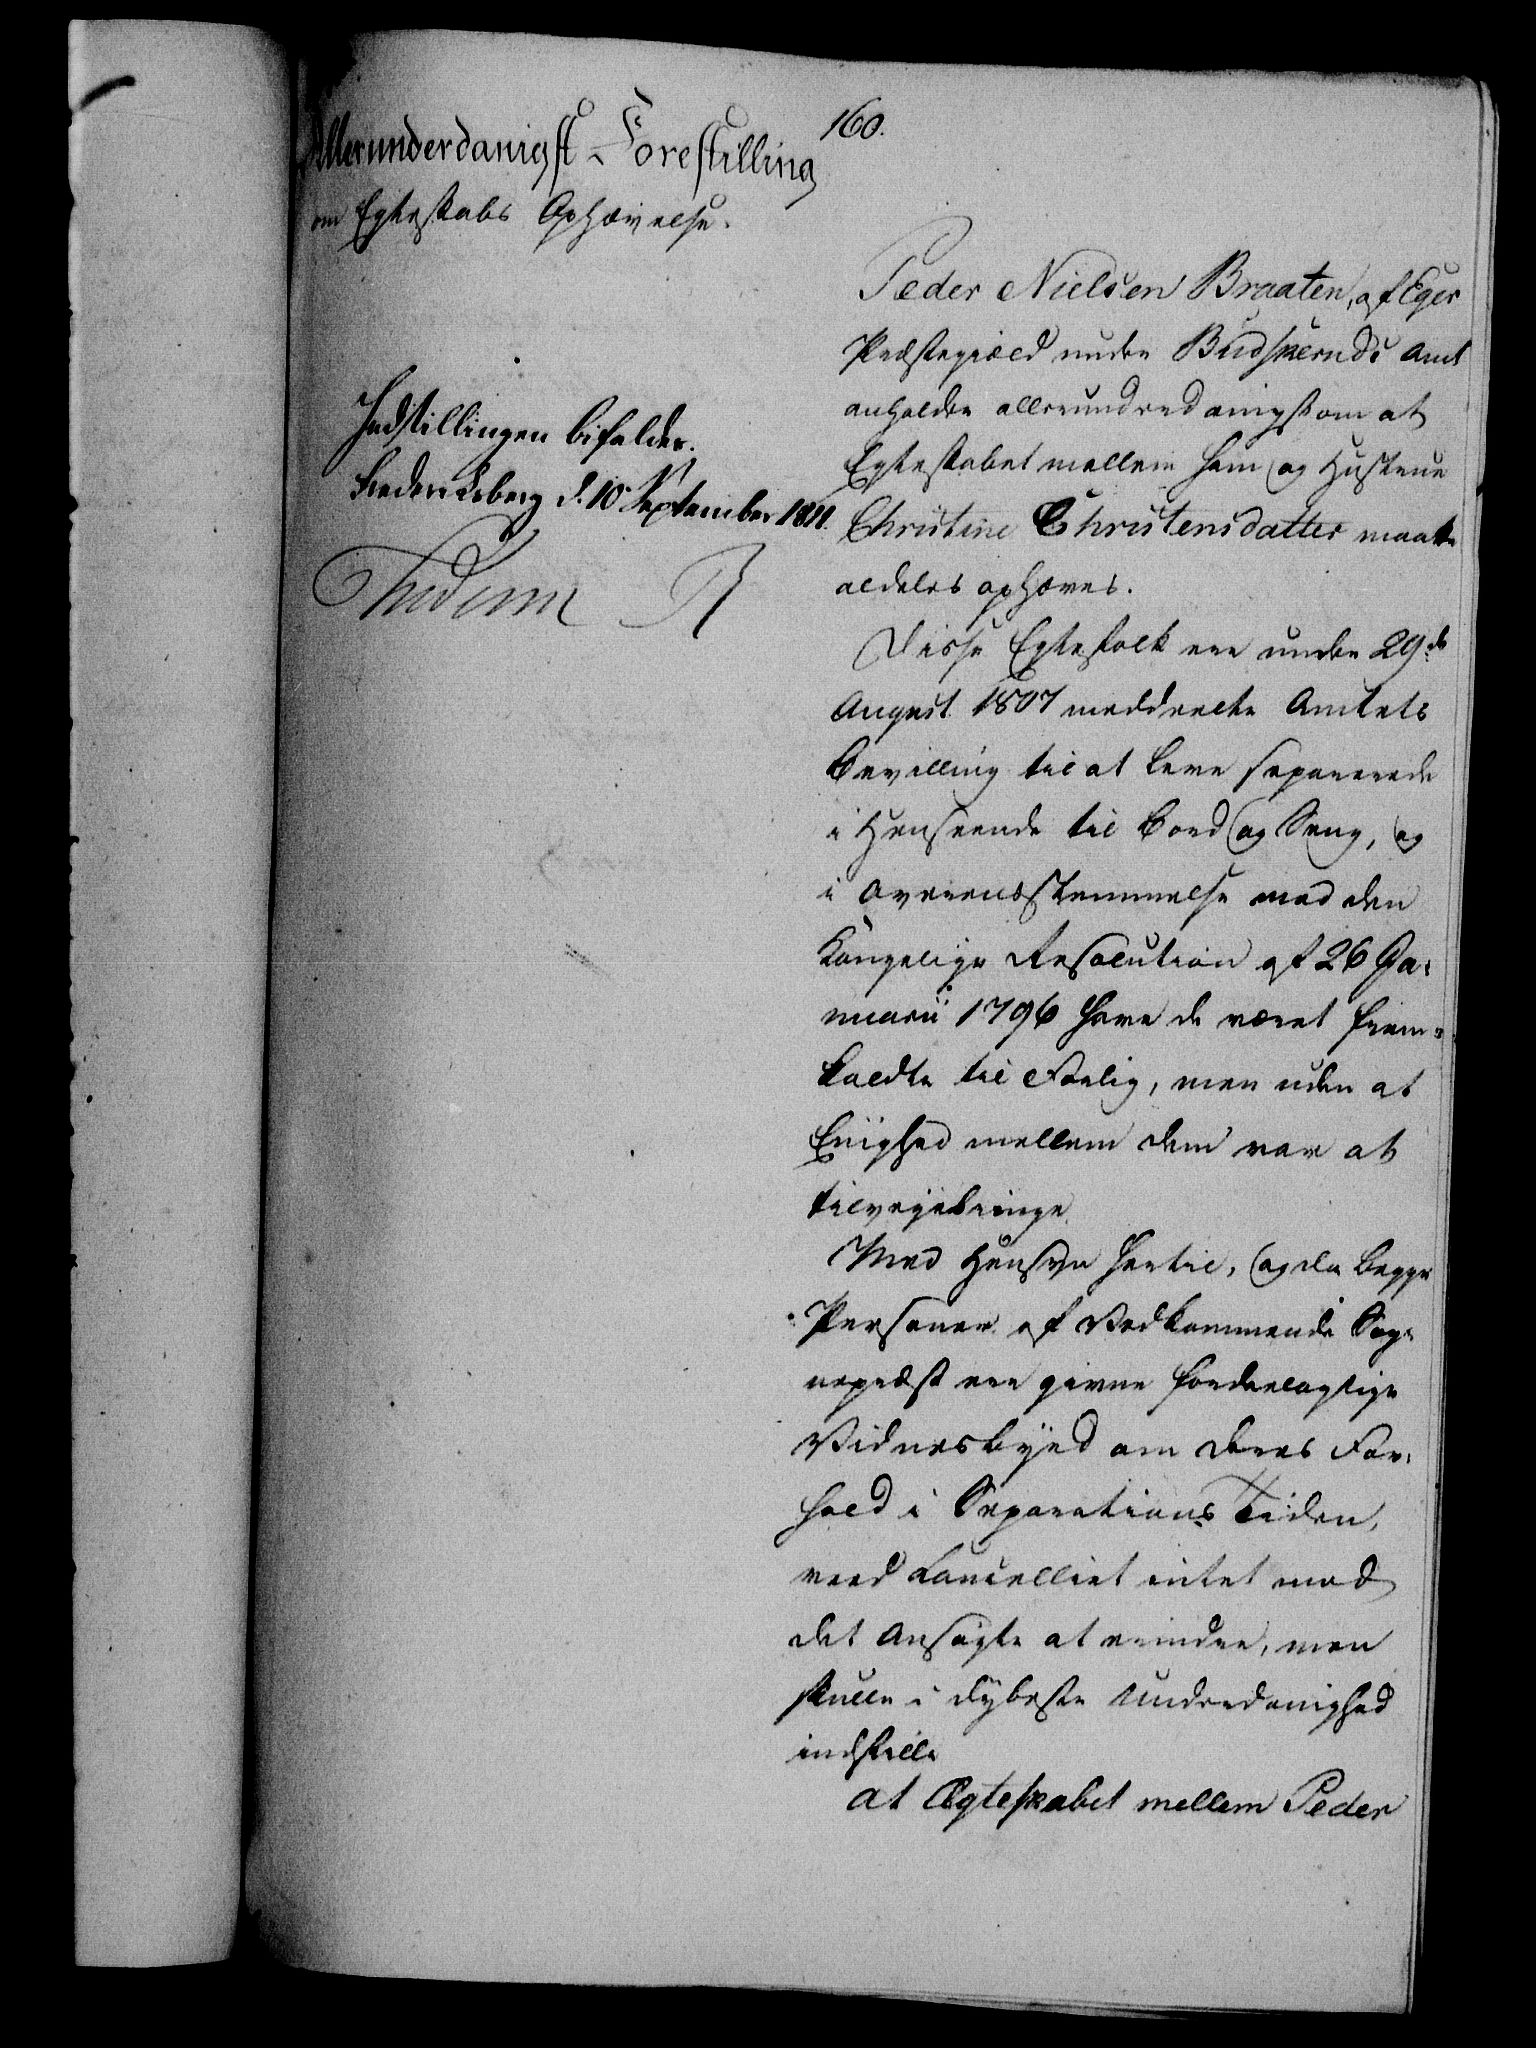 Allerunderdanigst Forestilling
om Egteskabs Ophævelse.
160.
Indstillingen bifaldes.
Frederiksberg d. 10 September 1811.
Frederik R
Peder Nielsen Braaten, af Eger
Præstegield under Budskeruds Amt
anholder allerunderdanigst om at
Egteskabet mellem ham og Hustrue
Christine Christensdatter maatte
aldeles ophæves.
Disse Egtefolk ere under 29de
August 1807 meddeelte Amtets
Bevilling til at leve separerede
i Henseende til Bord og Seng, og
i Overeensstemmelse med den
Kongelige Resolution af 26 Ja-
nuarii 1796 have de været frem-
kaldte til Forlig, men uden at
Eenighed mellem dem var at
tilvejebringe
Med Hensyn hertil, og da begge
Personer af Vedkommende Sog-
nepræst ere givne fordeelagtige
Vidnesbyrd om deres For-
hold i Separations Tiden,
veed Cancelliet intet mod
det Ansøgte at erindre, men
skulle i dybeste Underdanighed
indstille
at Ægteskabet mellem Peder